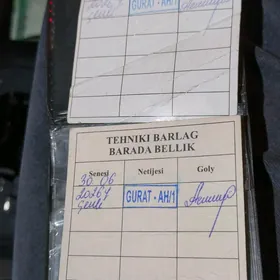 GURAT - AH/1
TEHNIKI BARLAG
BARADA BELLIK
Senesi Netijesi Goly
30 06
2026ý GURAT - AH/1